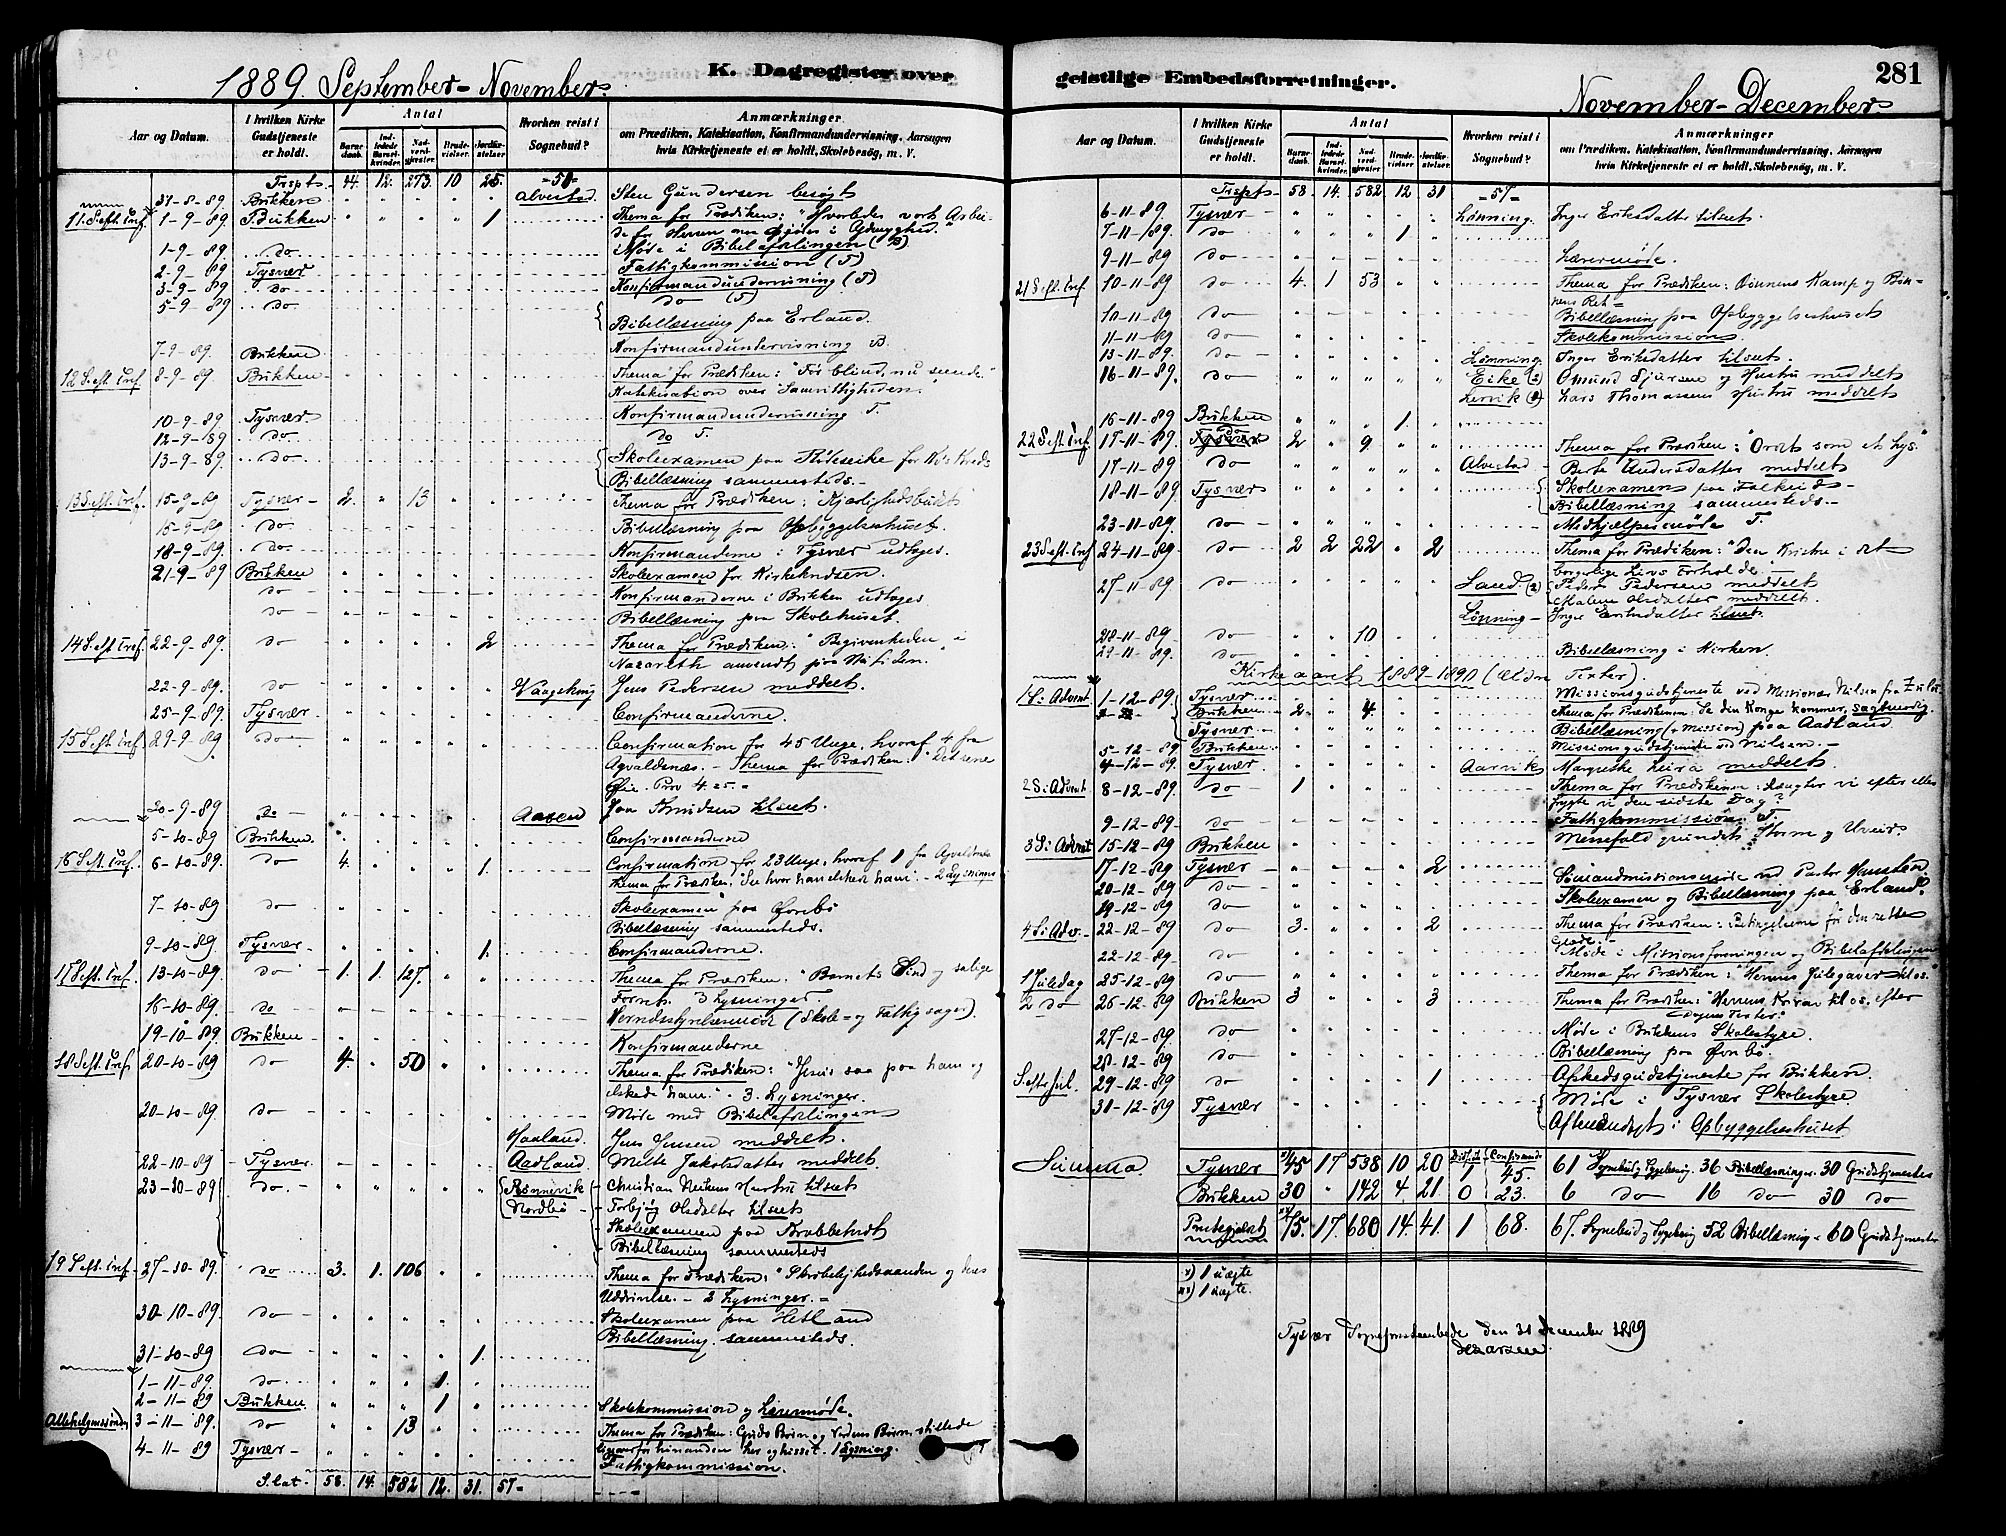 K. Dagregister over
1889. September - November.
Aar og Datum.
I hvilken Kirke Gudstjeneste er holdt.
Antal
Barnedaab.
Indledede Barselkvinder.
Nadverdgjester.
Brudevielser.
Jordfæstelser.
Hvorhen reist i Sognebud?
Anmærkninger
om Prædiken, Katekisation, Konfirmandundervisning, Aarsagen
hvis Kirketjeneste ei er holdt, Skolebesøg, m. V.
Trspt. 44. 12. 273. 10 25. -50-
31-8-89. Bukken Alvestad Sten Gundersen besøgt
11. S. eft. Tref. 1-9-89. Bukken 1 Thema for Prædiken: "Hvorledes vort Arbei-
de for Herren
1-9-89. do Møde i Bibelafdelingen (B)
2-9-89 Tysvær Fattigkommission (T)
3-9-89 do Konfirmandundervisning (T)
5-9-89 do do (T)
Bibellæsning paa Erland.
7-9-89. Bukken Konfirmandundervisning B.
12 S. eft. Tref. 8-9-89. Bukken Thema for Prædiken: "Før blind, nu seende."
Katekisation over Samvittigheden.
10-9-89. Tysvær Konfirmandundervisning T.
12-9-89 do do T.
13-9-89. do Skoleexamen paa
Bibellæsning sammesteds.
13 S. eft. Tref. 15-9-89 Tysvær 2. " 13 Thema for Prædiken: "Kjærlighedsbudet"
15-9-89 do Bibellæsning paa Opbyggelseshuset.
18-9-89. do Konfirmanderne i Tysvær udtages.
21-9-89 Bukken Skoleexamen for Kirkekredsen.
do Konfirmanderne i Bukken udtages
do Bibellæsning paa Skolehuset.
14 S. eft. Tref. 22-9-89. do 2 Thema for Prædiken: "Begivenheden i
Nazareth anvendt paa vor Tiden.
22-9-89. do Vaagehaug Jens Pedersen meddelt.
25-9-89. Tysvær Confirmanderne.
15 S. eft. Tref. 29-9-89 do Confirmation for 45 Unge, hvoraf 4 fra
Agvaldsnæs. - Thema for Prædiken:
Prov 4. 25.
30-9-89 do Aasen Knudsen tilseet.
5-10-89 Bukken Confirmanderne
16 S. eft. Tref. 6-10-89. do 4. 1. Confirmation for 23 Unge, hvoraf 1 fra Agvaldsnæs
Thema for Prædiken: "See hvor han elskede ham". - 2 Lysninger
7-10-89 do Skoleexamen paa Øvrebø
Bibellæsning sammesteds.
9-10-89. Tysvær 1. Confirmanderne.
17 S. eft. Tref. 13-10-89. do 1. 1. 127. Thema for Prædiken: "Barnets Sind og salige
3 Lysninger.
16-10-89. do Herredsstyrelsesmøde (Skole= og Fattigsager).
19-10-89. Bukken Konfirmanderne
18 S. eft. Tref. 20-10-89 do 4. " 50 Thema for Prædiken: "Jesus saa paa ham og
elskede ham." 3. Lysninger.
20-10-89. do Møde med Bibelafdelingen
Haaland. Jens Jensen meddelt.
22-10-89 Tysvær. Aadland Mette Jakobsdatter meddelt.
23-10-89 do. Rønnevik Christian Hustru tilseet
Nordbø Torbjøg Olsdatter tilseet
Skoleexamen paa
Bibellæsning sammesteds
19 S. eft. Tref. 27-10-89. do 3. 1. 106 Thema for Prædiken: " Skrøbelighedsaanden og dens
Uddrivelse. - 2 Lysninger. -
30-10-89 do Skoleexamen paa Hetland
Bibellæsning sammesteds.
31-10-89 do 1.
1-11-89 do. 1.
2-11-89 Bukken 1 Skolekommission og Lærermøde.
Allehelgenssøndag 3-11-89. do 13 Thema for Prædiken: Guds Børn og Verdens Børn, stillede
ligeoverfor hinanden her og hisset. 1 Lysning.
4-11-89 Tysvær Fattigkommission.
S. lat. 58. 14. 582 12. 31. 57-
281
geistlige Embedsforretninger.
November - December.
Aar og Datum.
I hvilken Kirke Gudstjeneste er holdt.
Antal
Barnedaab.
Indledede Barselkvinder.
Nadverdgjester.
Brudevielser.
Jordfæstelser.
Hvorhen reist i Sognebud?
Anmærkninger
om Prædiken, Katekisation, Konfirmandundervisning, Aarsagen
hvis Kirketjeneste ei er holdt, Skolebesøg, m. V.
Trspt. 58. 14. 582 12 31 -57-
6-11-89. Tysvær Lønning. Inger Eriksdatter tilseet.
7-11-89. do 1
9-11-89 do Lærermøde.
21 S. eft. Tref. 10-11-89 do 4. 1 53 Thema for Prædiken: Kamp og Bøn-
nens Ret
10-11-89 do Bibellæsning paa Opbyggelseshuset
11-11-89 do Skolekommission.
13-11-89. do Lønning Inger Eriksdatter tilseet.
16-11-89. do Eike (2) Omund Sjursen og Hustru meddelt
Lervik (2) Lars Thomassens Hustru meddelt
16-11-89 Bukken 1
22 S. eft. Tref. 17-11-89. do 2 " 9 Thema for Prædiken: "Ordet som et Lys."
17-11-89 do Alvestad Berte Andersdatter meddelt
18-11-89 Tysvær Skoleexamen paa Falkeid
Bibellæsning sammesteds
23-11-89. do Medhjælpermøde T.
23 S. eft. Tref. 24-11-89 do 2 2 22 " 2 Thema for Prædiken: "Den Kristne i det
borgerlige Livs Forholde."
27-11-89 do Sand. (2) Peder Pedersen meddelt
Malene Olsdatter meddelt.
Lønning Inger Eriksdatter tilseet.
28-11-89 do 10
29-11-89. do Bibellæsning i Kirken.
Kirkeaaret 1889-1890 (Ældre Texter).
1 S. i Advent 1-12-89. Tysvær Missionsgudstjeneste ved Missionær Nilsen fra Zulu.
Bukken 2. " 4. Thema for Prædikenen: Se din Konge kommer, sagtmodig.
Tysvær Bibellæsning (+ Mission) paa Aadland
5-12-89 Bukken Missionsgudstjeneste ved Nilsen.
4-12-89. Tysvær Aarvik Margrethe Leira meddelt.
2 S. i Advent 8-12-89. do 1 Thema for Prædikenen: Længter vi efter eller
frygte vi den sidste Dag?
9-12-89. do Fattigkommission T.
3 S. i Advent 15-12-89 Bukken Messefald grundet Storm og Uveir
17-12-89 Tysvær 2 Sømandsmissionsmøde ved Pastor
20-12-89 do Skoleexamen og Bibellæsning paa Erland.
19-12-89 do
4 S. i Adv. 22-12-89 do 3. 2 Thema for Prædiken: Betingelserne for den rette
Glæde.
22-12-89 do Møde i Missionsforeningen og Bibelafdelingen
1 Juledag 25-12-89 do Thema for Prædiken: "Herrens Julegaver til os."
2 do 26-12-89 Bukken 3 3 Thema for Prædiken: "Herrens Krav til os, efter
Dagens Texter."
27-12-89 do Møde i Bukkens Skolestyre.
28-12-89 do Bibellæsning paa Øvrebø.
S. eft. Jul. 29-12-89 do 1 Afskedsgudstjeneste for Bukken.
30-12-89 Tysvær Møde i Tysvær Skolestyre
Aftenandagt i Opbyggelseshuset
Summa
Confirmeret
Tysvær x)45 17 538 10 20 1 45. 61 Sognebud og Sygebesøg 36 Bibellæsninger 30 Gudstjenester
Bukken 30 " 142 4. 21. 0 23. 6 do 16 do 30 do
Præstegjældet xx)75. 17. 680 14. 41. 1 68. 67. Sognebud og Sygebesøg 52 Bibellæsning - 60 Gudstjenester
x) 1 uægte
xx) 1 uægte.
Tysvær Sognepræsteembede den 31 December 1889